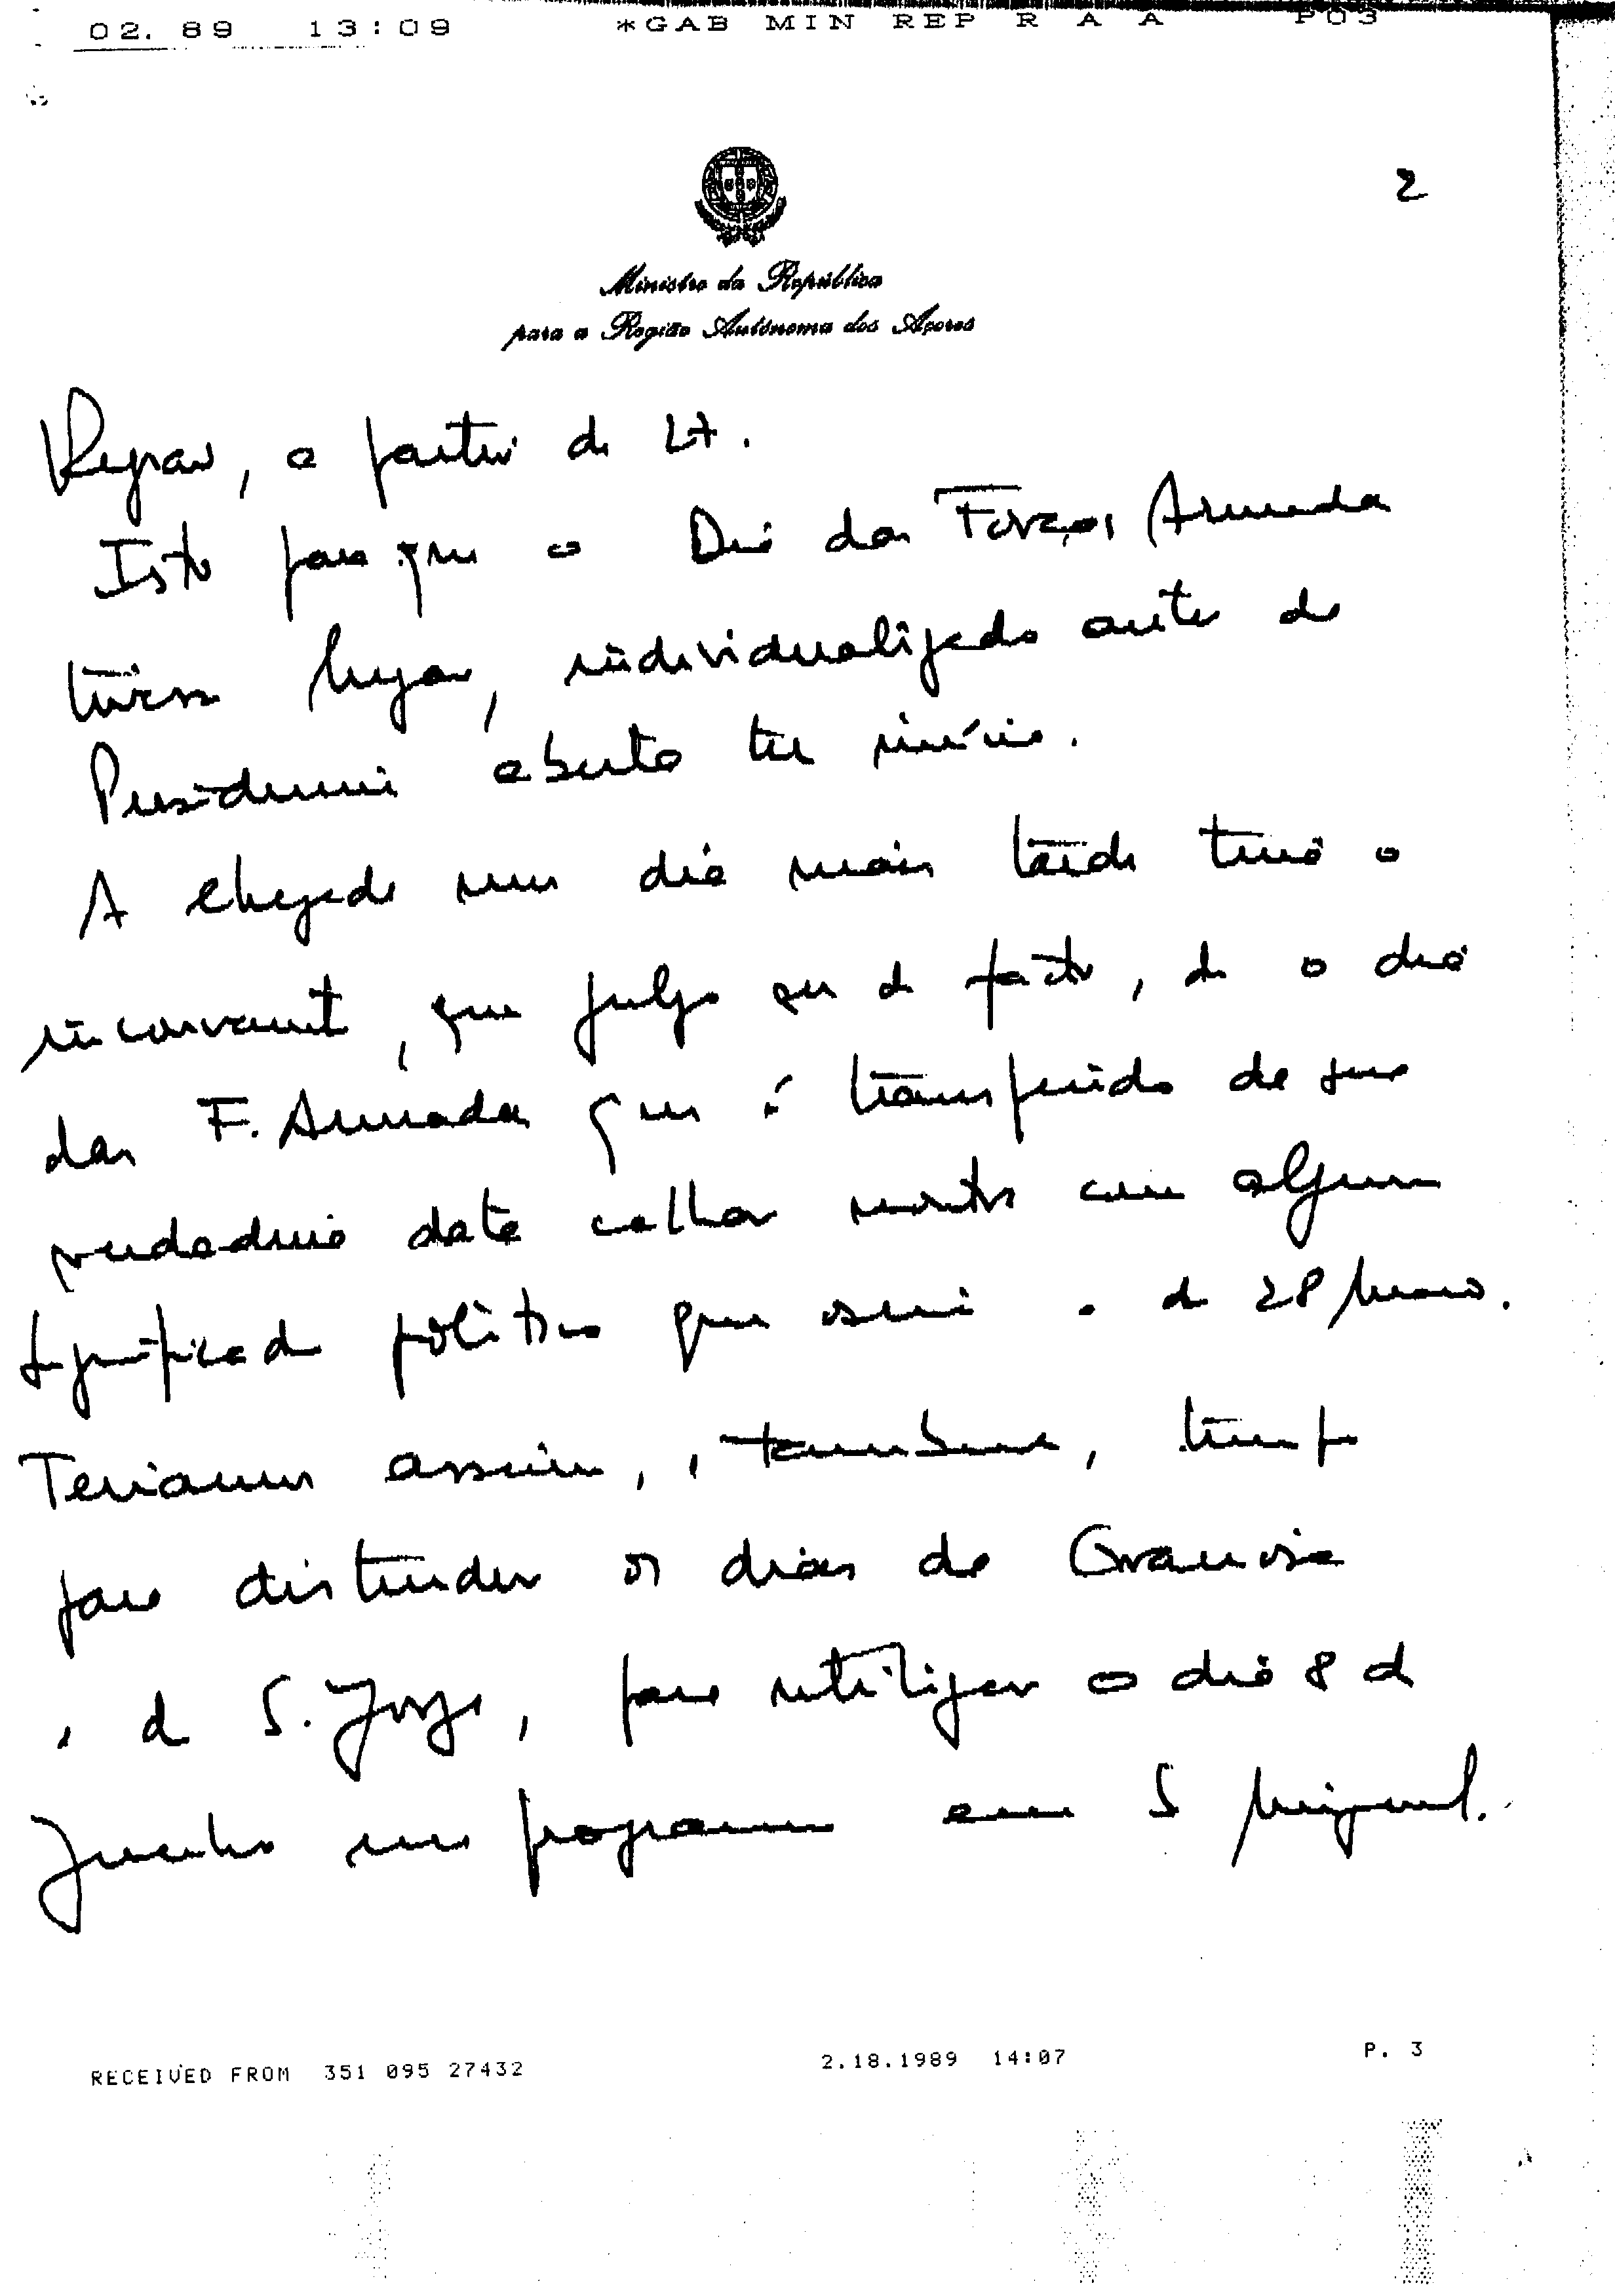 02. 89 13:09 *GAB MIN REP R A A P03
2
Ministro da República
para a Região Autónoma dos Açores
, a partir de 27.
Isto para que o Dia das Forças Armadas
tivesse lugar, individualizado antes da
Presidência aberta ter início.
A chegada um dia mais tarde teria o
inconveniente, que julgo ser de facto, de o dia
das F. Armadas que é transferido da sua
verdadeira data calhar noutro com algum
significado político que seria o de 28 Maio.
Teríamos assim, e também, tempo
para distender os dias da Graciosa
e de S. Jorge, para utilizar o dia 8 de
Junho num programa em S Miguel.
RECEIVED FROM 351 095 27432 2.18.1989 14:07 P. 3